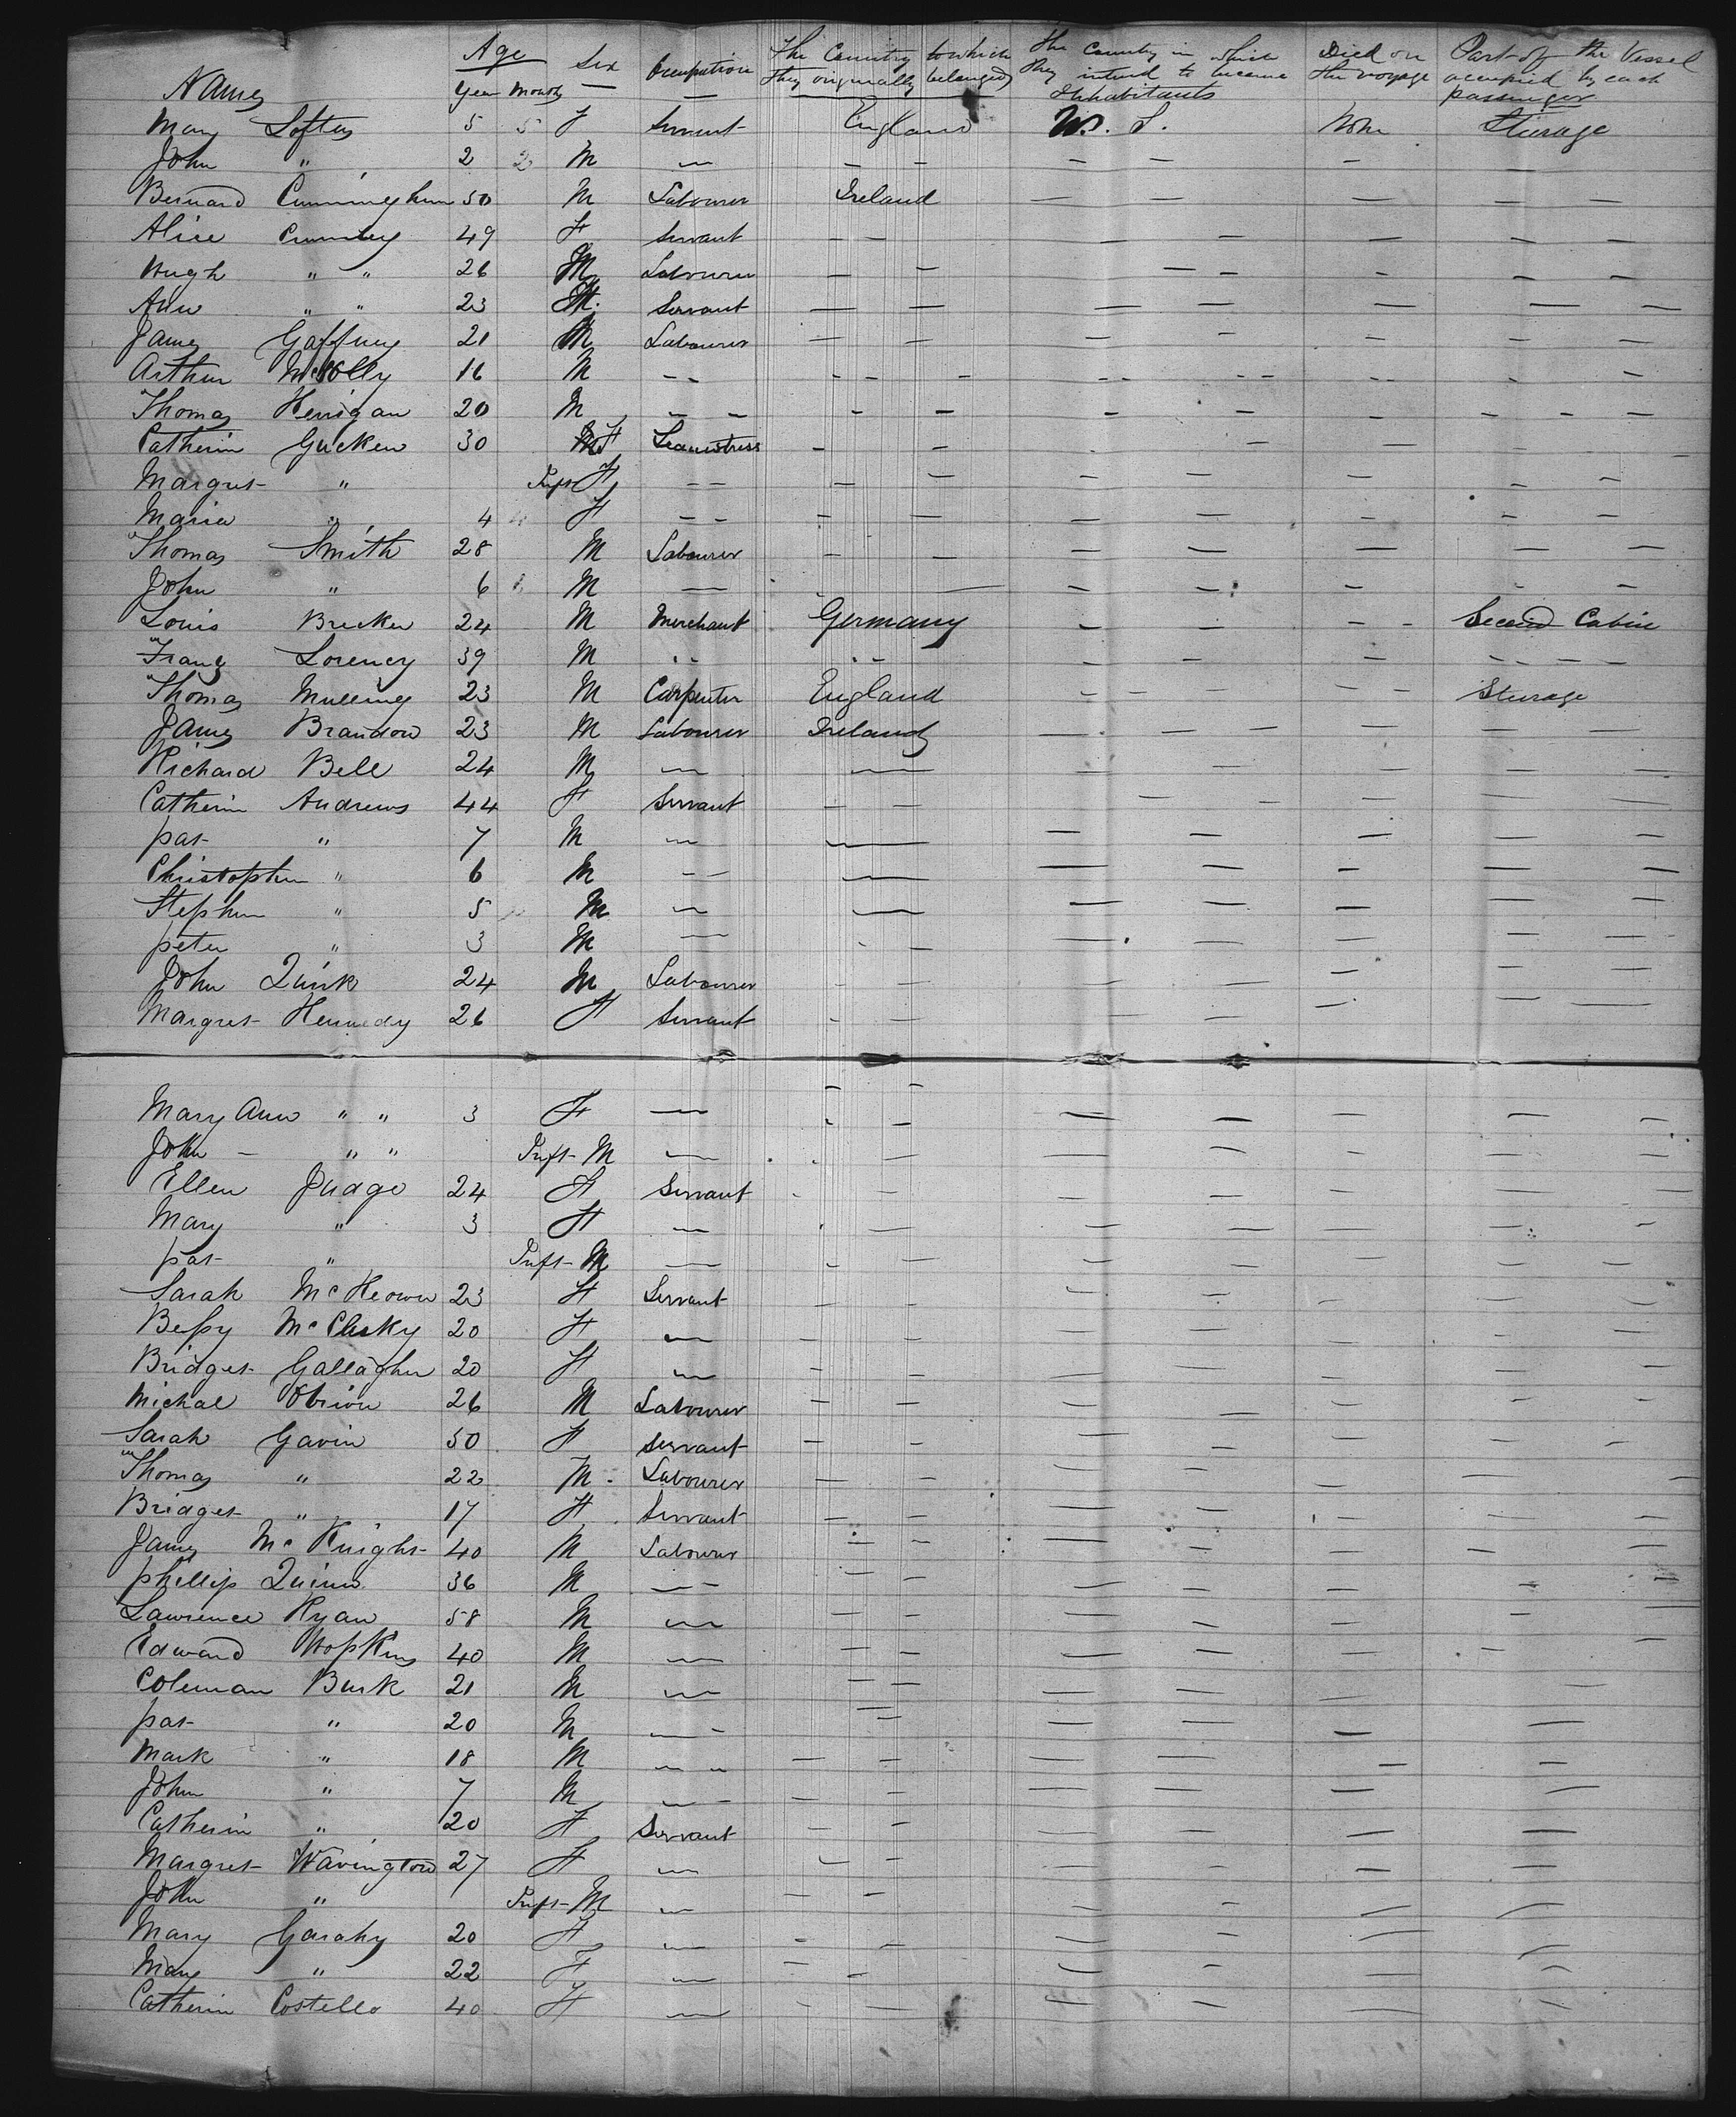 Names Age Years Months Sex Occupation The Country to which they originally belonged The Country in which they intend to become Inhabitants Died on the voyage Part of the Vessel occupied by each passenger
Mary Loftus 5 5 F Servant England U. S. None Sturage
John " 2 2 M — — — — — — —
Bernard Cunningham 50 M Labourer Ireland — — — — —
Alice 49 F Servant — — — — — — —
Hugh " " 26 M Labourer — — — — — — —
Ann " " 23 F. Servant — — — — — — —
James Gaffney 21 M Labourer — — — — — — —
Arthur 16 M - - - - - - - - - - - -
Thomas Herrigan 20 M - - - - - - - - - -
Catherin Gucken 30 F Seamstress - - - - - -
Margret " Inft F - - - - - - - - -
Maria " 4 4 F - - - - - - - - -
Thomas Smith 28 M Labourer - - - - - - -
John " 6 M — — - - - - -
Louis Brecker 24 M Merchant Germany - - - - Second Cabin
Franz Lorency 39 M " " " " - - - - - - -
Thomas Mullins 23 M Carpenter England - - - - - Sturage
James Brandon 23 M Labourer Ireland — — — — — —
Richard Bell 24 M — — — — — — —
Catherin Andrews 44 F Servant — — — — — — —
pat " 7 M — — — — — — —
Christopher " 6 M — — — — — — —
Stephen " 5 M — — — — — — —
peter " 3 M — — — — — — — —
John Quirk 24 M Labourer — — — — — — —
Margret Hennedy 26 F Servant — — — — — — —
Mary Ann " " 3 F — — — — — — — —
John - " " Inft M — — — — — — — —
Ellen Judge 24 F Servant — — — — — — —
Mary " 3 F — — — — — — — —
pat " Inft M — — — — — — — —
Sarah McHeown 23 F Servant — — — — — — —
Bessy McClusky 20 F — — — — — — — —
Bridget Gallagher 20 F — — — — — — — —
Michal Obrion 26 M Labourer — — — — — — —
Sarah Gavin 50 F Servant — — — — — — —
Thomas " 22 M Labourer — — — — — — —
Bridget " 17 F Servant — — — — — — —
James McKnight 40 M Labourer — — — — — — —
phillip Quinn 36 M — — — — — — — —
Lawrence Ryan 58 M — — — — — — — —
Edward Hopkins 40 M — — — — — — —
Coleman Burk 21 M — — — — — — —
pat " 20 M — — — — — — — —
Mark " 18 M — — — — — — — —
John " 7 M — — — — — — — —
Catherin " 20 F Servant — — — — — —
Margret Wavington 27 F — — — — — — —
John " Inft M — — — — — — —
Mary Garahy 20 F — — — — — — —
Mary " 22 F — — — — — — —
Catherin Costello 40 F — — — — — — —